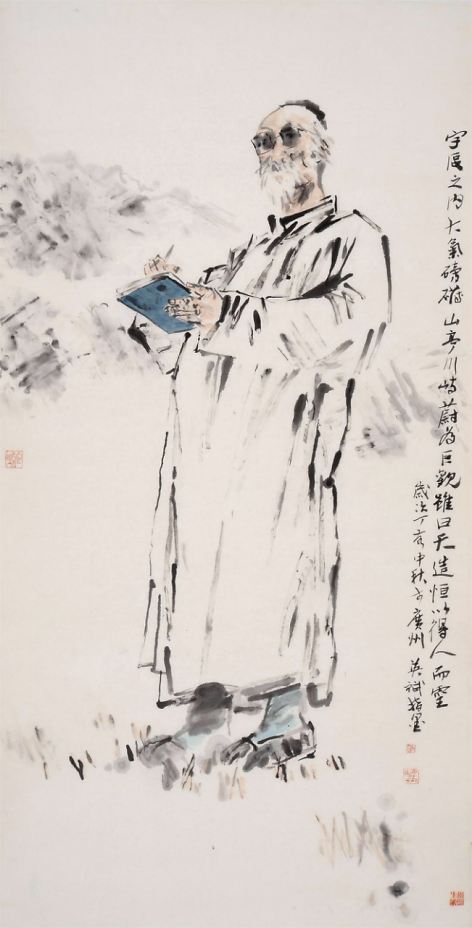 宇厦之内大氣磅礴山亭川峙蔚为巨觀雖曰天造恒以得人而靈
歲次丁亥中秋於廣州 英斌指墨